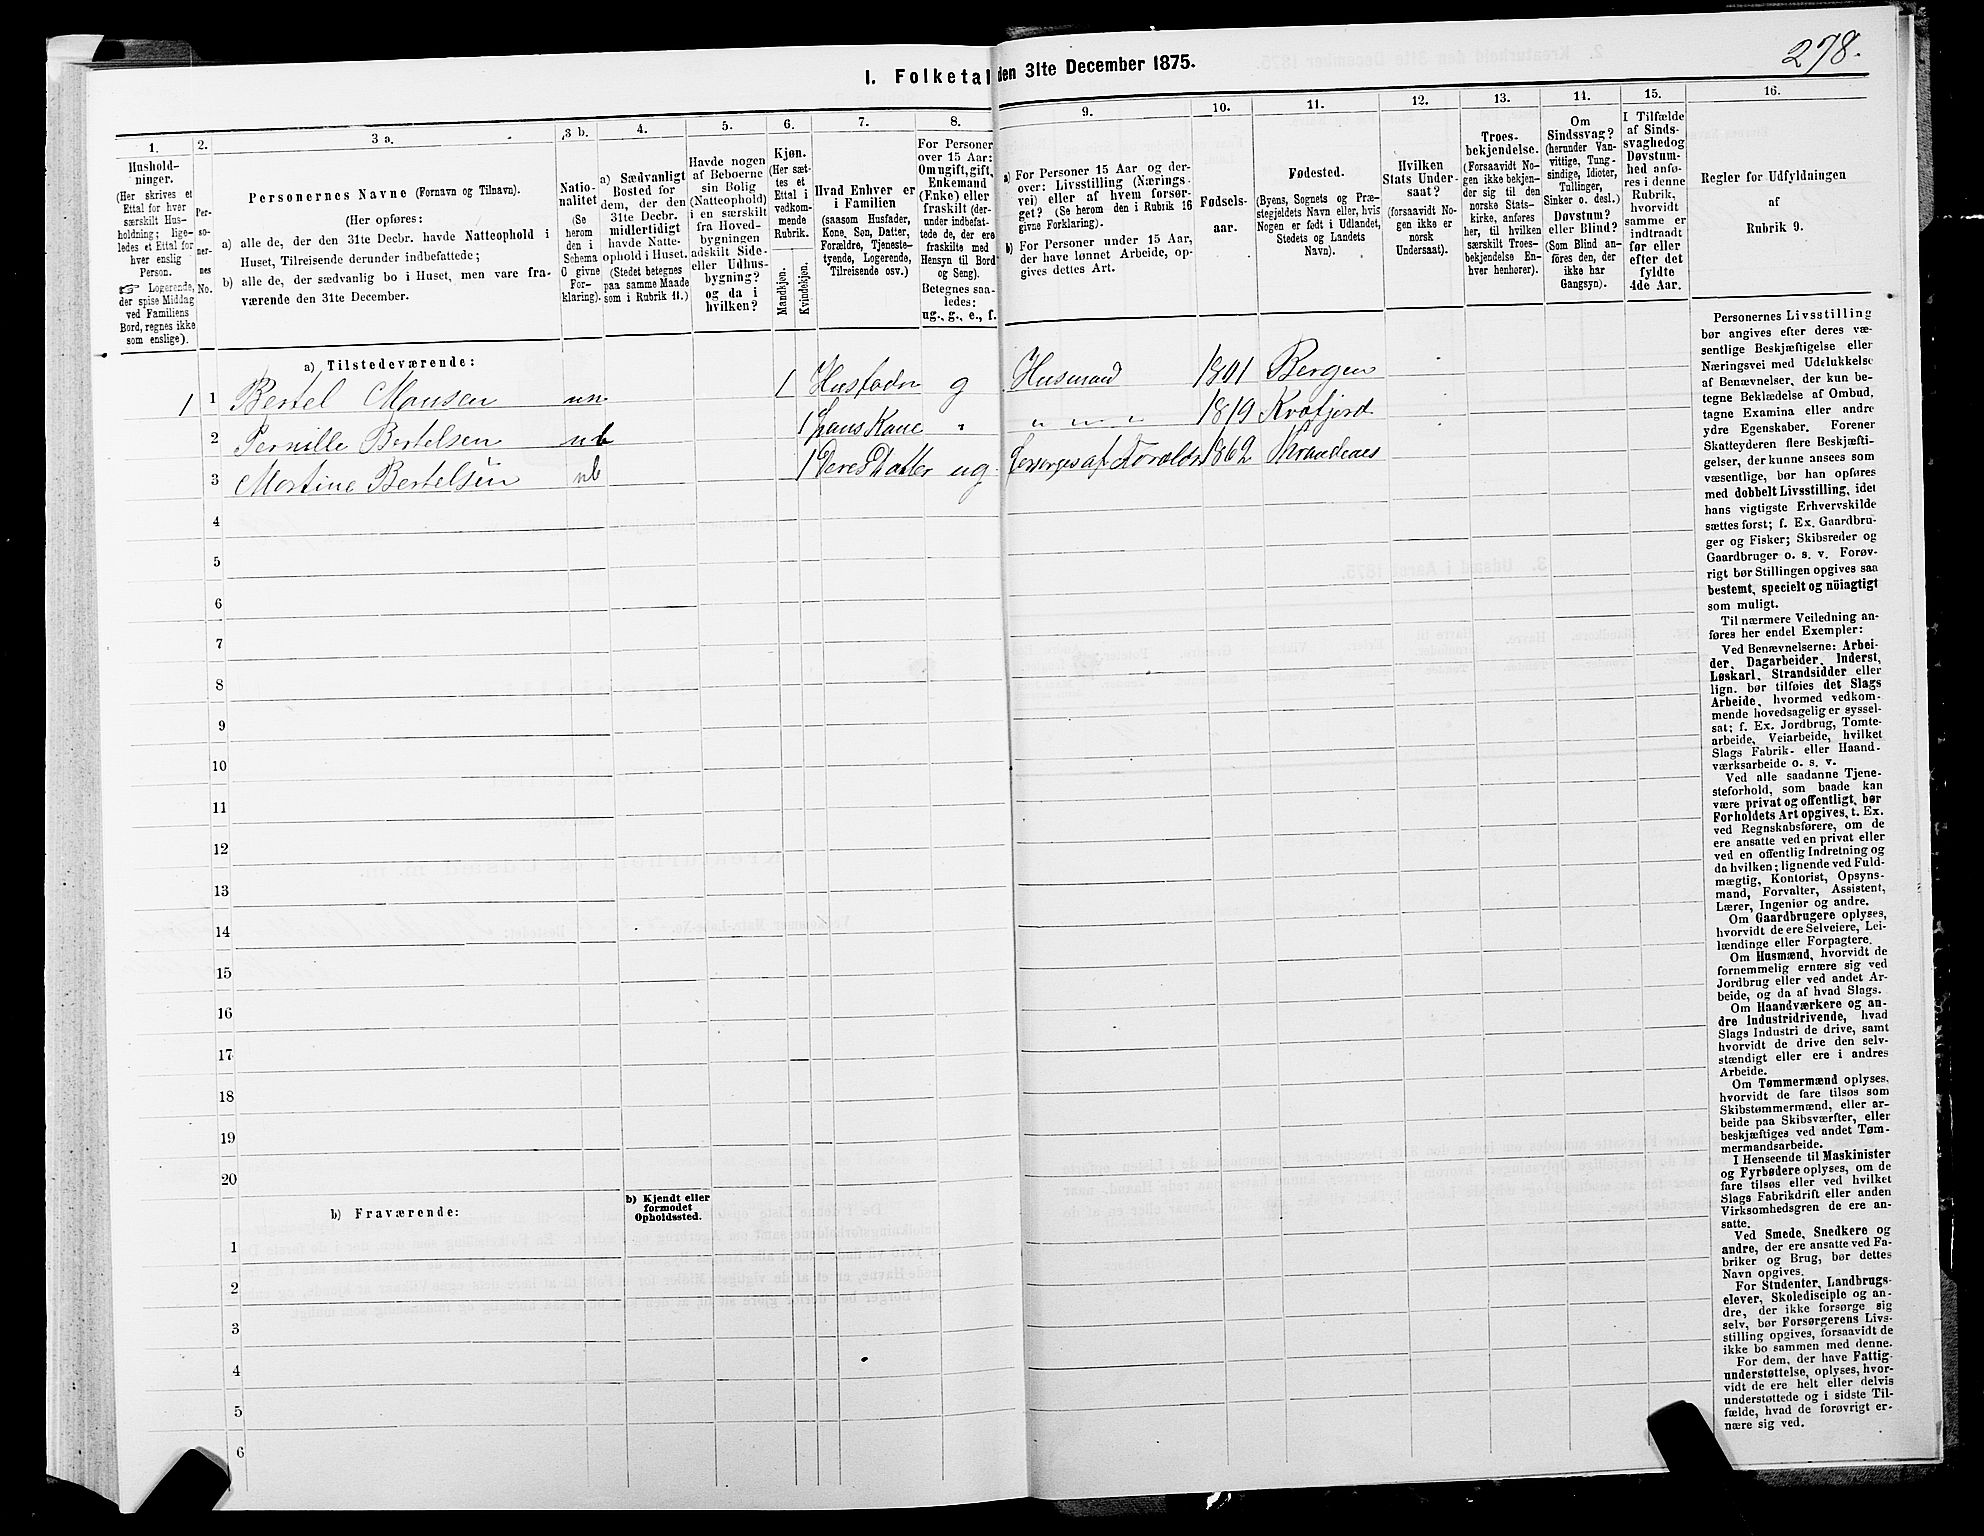 278.
I. Folketal den 31te December 1875.
1. 2. 3 a. 3 b. 4. 5. 6. 7. 8. 9. 10. 11. 12. 13. 14. 15. 16.
Hushold-
ninger.
(Her skrives et
Ettal for hver
særskilt Hus-
holdning; lige-
ledes et Ettal for
hver enslig
Person.
☞ Logerende,
der spise Middag
ved Familiens
Bord, regnes ikke
som enslige).
Per-
so-
ner-
nes
No.
Personernes Navne (Fornavn og Tilnavn).
(Her opføres:
a) alle de, der den 31te Decbr. havde Natteophold i
Huset, Tilreisende derunder indbefattede;
b) alle de, der sædvanlig bo i Huset, men vare fra-
værende den 31te December.
Natio-
nalitet
(Se
herom
den i
Schema
C givne
For-
klaring).
a) Sædvanligt
Bosted for
dem, der den
31te Decbr.
midlertidigt
havde Natte-
ophold i Huset.
(Stedet betegnes
paa samme Maade
som i Rubrik 11.)
Havde nogen
af Beboerne
sin Bolig
(Natteophold)
i en særskilt
fra Hoved-
bygningen
adskilt Side-
eller Udhus-
bygning?
og da i
hvilken?
Kjøn.
(Her sæt-
tes et
Ettal i
vedkom-
mende
Rubrik.
Mandkjøn.
Kvindekjøn.
Hvad Enhver er
i Familien
(saasom Husfader,
Kone, Søn, Datter,
Forældre, Tjeneste-
tyende, Logerende,
Tilreisende osv.)
For Personer
over 15 Aar:
Om ugift, gift,
Enkemand
(Enke) eller
fraskilt (der-
under indbefat-
tede de, der ere
fraskilte med
Hensyn til Bord
og Seng).
Betegnes saa-
ledes:
ug., g., e., f.
a) For Personer 15 Aar og der-
over: Livsstilling (Nærings-
vei) eller af hvem forsør-
get? (Se herom den i Rubrik 16
givne Forklaring).
b) For Personer under 15 Aar,
der have lønnet Arbeide, op-
gives dettes Art.
Fødsels-
aar.
Fødested.
(Byens, Sognets og Præ-
stegjeldets Navn eller, hvis
Nogen er født i Udlandet,
Stedets og Landets
Navn).
Hvilken
Stats Under-
saat?
(forsaavidt No-
gen ikke er
norsk
Undersaat).
Troes-
bekjendelse.
(Forsaavidt No-
gen ikke bekjen-
der sig til den
norske Stats-
kirke, anføres
her, til hvilken
særskilt Troes-
bekjendelse En-
hver henhorer).
Om
Sindssvag?
(herunder Van-
vittige, Tung-
sindige, Idioter,
Tullinger,
Sinker o. desl.)
Døvstum?
eller Blind?
(Som Blind an-
føres den, der
ikke har
Gangsyn).
I Tilfælde
af Sinds-
svaghed og
Døvstum-
hed anfø-
res i denne
Rubrik,
hvorvidt
samme er
indtraadt
før eller
efter det
fyldte
4de Aar.
Regler for Udfyldningen
af
Rubrik 9.
a) Tilstedeværende:
1 1 Bertel Monsen nn 1 Husfader g Husmand 1801 Bergen
2 Pernille Bertelsen nb 1 hans Kone " " " " 1819 Kvæfjord
3 Martine Bertelsen nb 1 Deres Datter ug Forsørges af Foræld. 1862 Trondenes
4
5
6
7
8
9
10
11
12
13
14
15
16
17
18
19
20
b) Fraværende:
b) Kjendt eller
formodet
Opholdssted.
1
2
3
4
5
6
Personernes Livsstilling
bør angives efter deres væ-
sentlige Beskjæftigelse eller
Næringsvei med Udelukkelse
af Benævnelser, der kun be-
tegne Beklædelse af Ombud,
tagne Examina eller andre
ydre Egenskaber. Forener
Skatteyderen flere Beskjæfti-
gelser, der kunne ansees som
væsentlige, bør han opføres
med dobbelt Livsstilling, idet
hans vigtigste Erhvervskilde
sættes først; f. Ex. Gaardbru-
ger og Fisker; Skibsreder og
Gaardbruger o. s. v. Forøv-
rigt bør Stillingen opgives saa
bestemt, specielt og nöiagtigt
som muligt.
Til nærmere Veiledning an-
føres her endel Exempler:
Ved Benævnelserne: Arbei-
der, Dagarbeider, Inderst,
Løskarl, Strandsidder eller
lign. bør tilføies det Slags
Arbeide, hvormed vedkom-
mende hovedsagelig er syssel-
sat; f. Ex. Jordbrug, Tomte-
arbeide, Veiarbeide, hvilket
Slags Fabrik- eller Haand-
værksarbeide o. s. v.
Ved alle saadanne Tjene-
steforhold, som baade kan
være privat og offentligt, bør
Forholdets Art opgives, t. Ex.
ved Regnskabsførere, om de
ere ansatte ved en privat eller
ved en offentlig Indretning og
da hvilken; lignende ved Fuld-
mægtig, Kontorist, Opsyns-
mand, Forvalter, Assistent,
Lærer, Ingeniør og andre.
Om Gaardbrugere oplyses,
hvorvidt de ere Selveiere, Lei-
lændinge eller Forpagtere.
Om Husmænd, hvorvidt de
fornemmelig ernære sig ved
Jordbrug eller ved andet Ar-
beide, og da af hvad Slags.
Om Haandværkere og an-
dre Industridrivende, hvad
Slags Industri de drive, samt
hvorvidt de drive den selv-
stændigt eller ere i andres
Arbeide.
Om Tømmermænd oplyses,
hvorvidt de fare tilsøs som
Skibstømmermænd, eller ar-
beide paa Skibsværfter, eller
beskjæftiges ved andet Tøm-
mermandsarbeide.
I Henseende til Maskinister
og Fyrbødere oplyses, om de
fare tilsøs eller ved hvilket
Slags Fabrikdrift eller anden
Virksomhedsgren de ere an-
satte.
Ved Smede, Snedkere og
andre, der ere ansatte ved Fa-
briker og Brug, bør dettes
Navn opgives.
For Studenter, Landbrugs-
elever, Skoledisciple og an-
dre, der ikke forsørge sig
selv, bør Forsørgerens Livs-
stilling opgives, forsaavidt de
ikke bo sammen med denne.
For dem, der have Fattig-
understøttelse, oplyses, hvor-
vidt de ere helt eller delvis
understøttede og i sidste Til-
fælde, hvad de forøvrigt er-
nære sig ved.